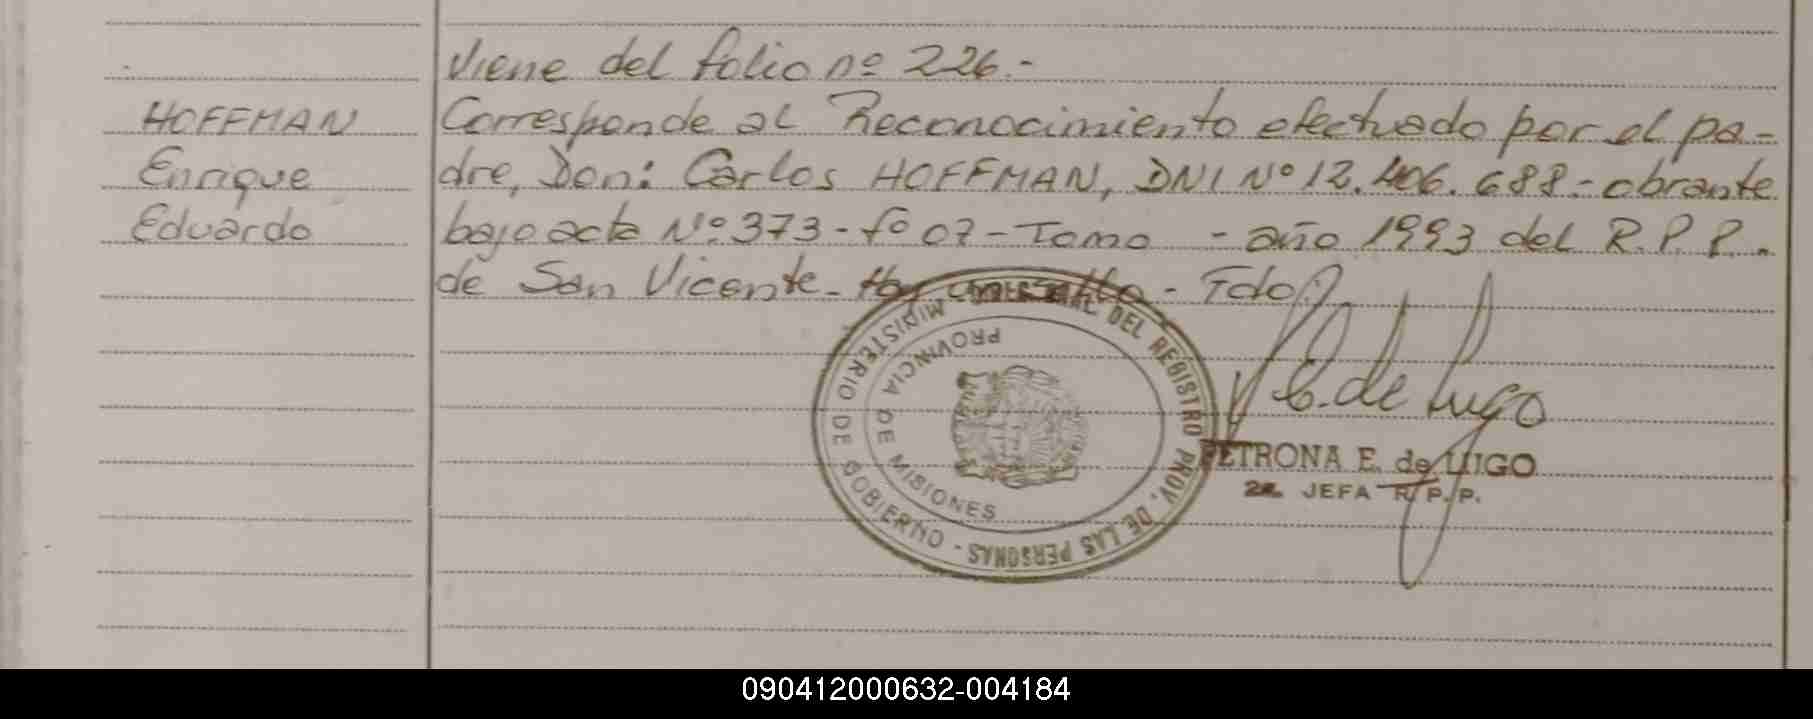 Viene del folio nº 226.-
HOFFMAN
Enrique
Eduardo
Corresponde al Reconocimiento efectuado por el pa-
dre, Don: Carlos HOFFMAN, DNI Nº 12.406.688.- obrante
bajo acta Nº 373 - fº 07 - Tomo - año 1993 del R.P.P.
de San Vicente - Hay un sello - Fdo.
MINISTERIO DE GOBIERNO - DEL REGISTRO PROV. DE LAS PERSONAS
PROVINCIA DE MISIONES
E. de Lugo
PETRONA E. de LUGO
2a. JEFA R.P.P.
090412000632-004184